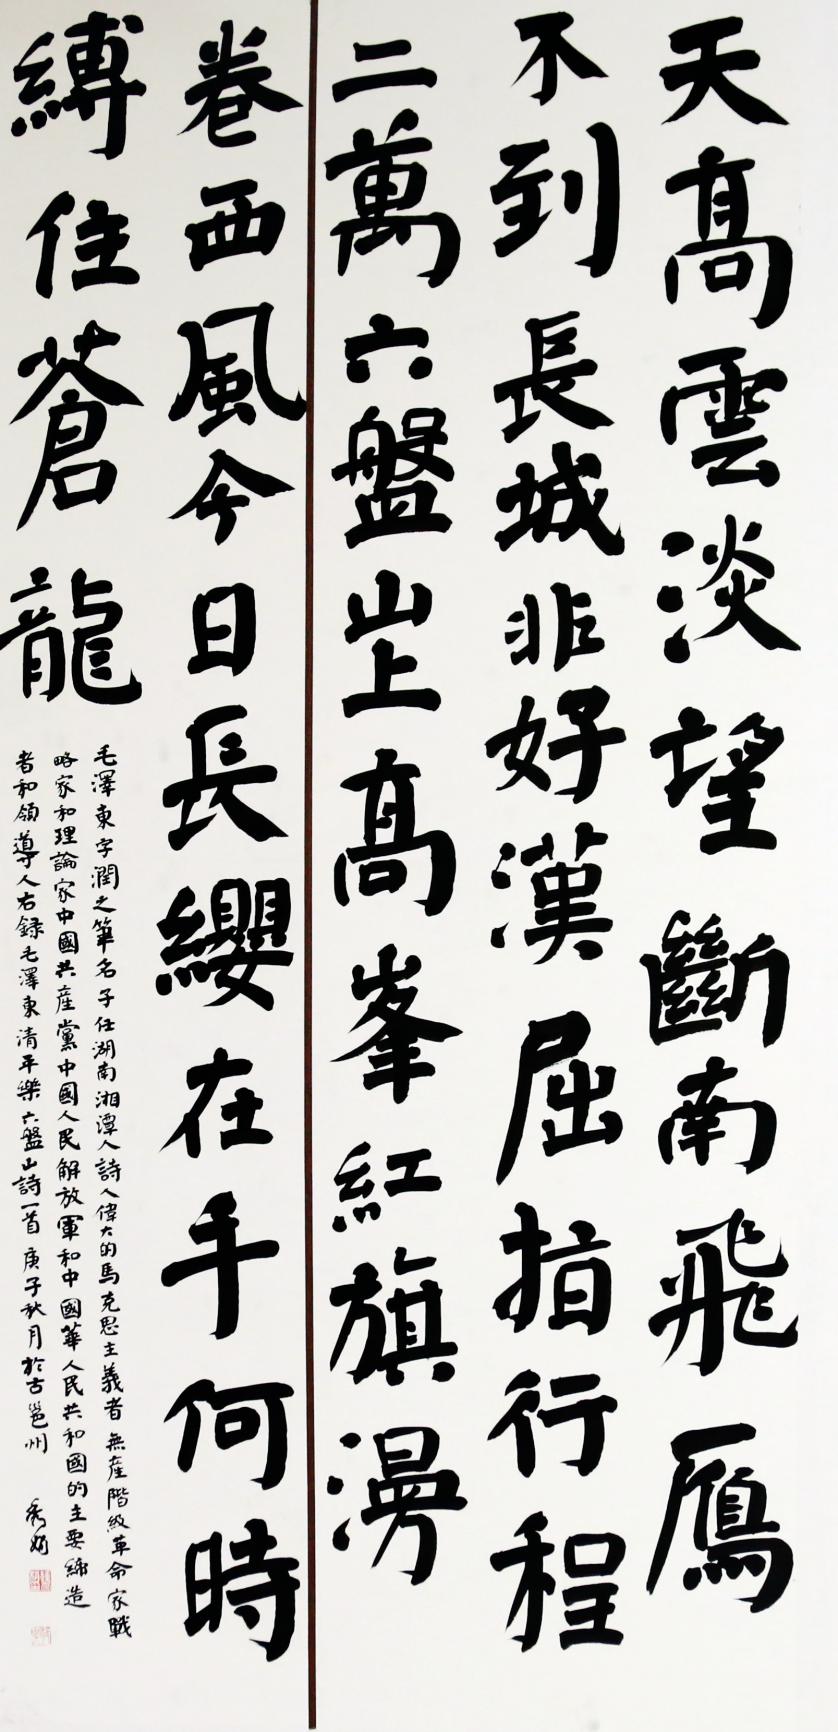 天高雲淡望斷南飛鴈
不到長城非好漢屈指行程
二萬六盤山上高峯紅旗漫
卷西風今日長纓在手何時
縛住蒼龍
毛澤東字潤之筆名子任湖南湘潭人詩人偉大的馬克思主義者無産階級革命家戰
略家和理論家中國共産黨中國人民解放軍和中國華人民共和國的主要締造
者和領導人右録毛澤東清平樂六盤山詩一首庚子秋月於古邕州